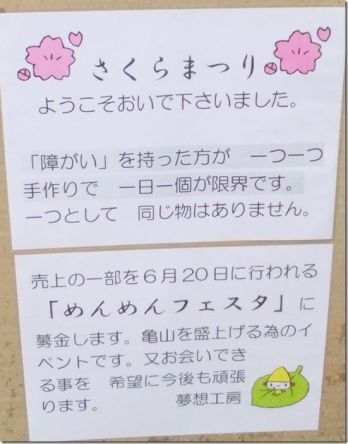 さくらまつり
ようこそおいで下さいました。
「障がい」を持った方が　一つ一つ
手作りで　一日一個が限界です。
一つとして　同じ物はありません。
売上の一部を６月２０日に行われる
「めんめんフェスタ」に
募金します。亀山を盛上げる為のイ
ベントです。又お会いでき
る事を　希望に今後も頑張
ります。　　　　夢想工房